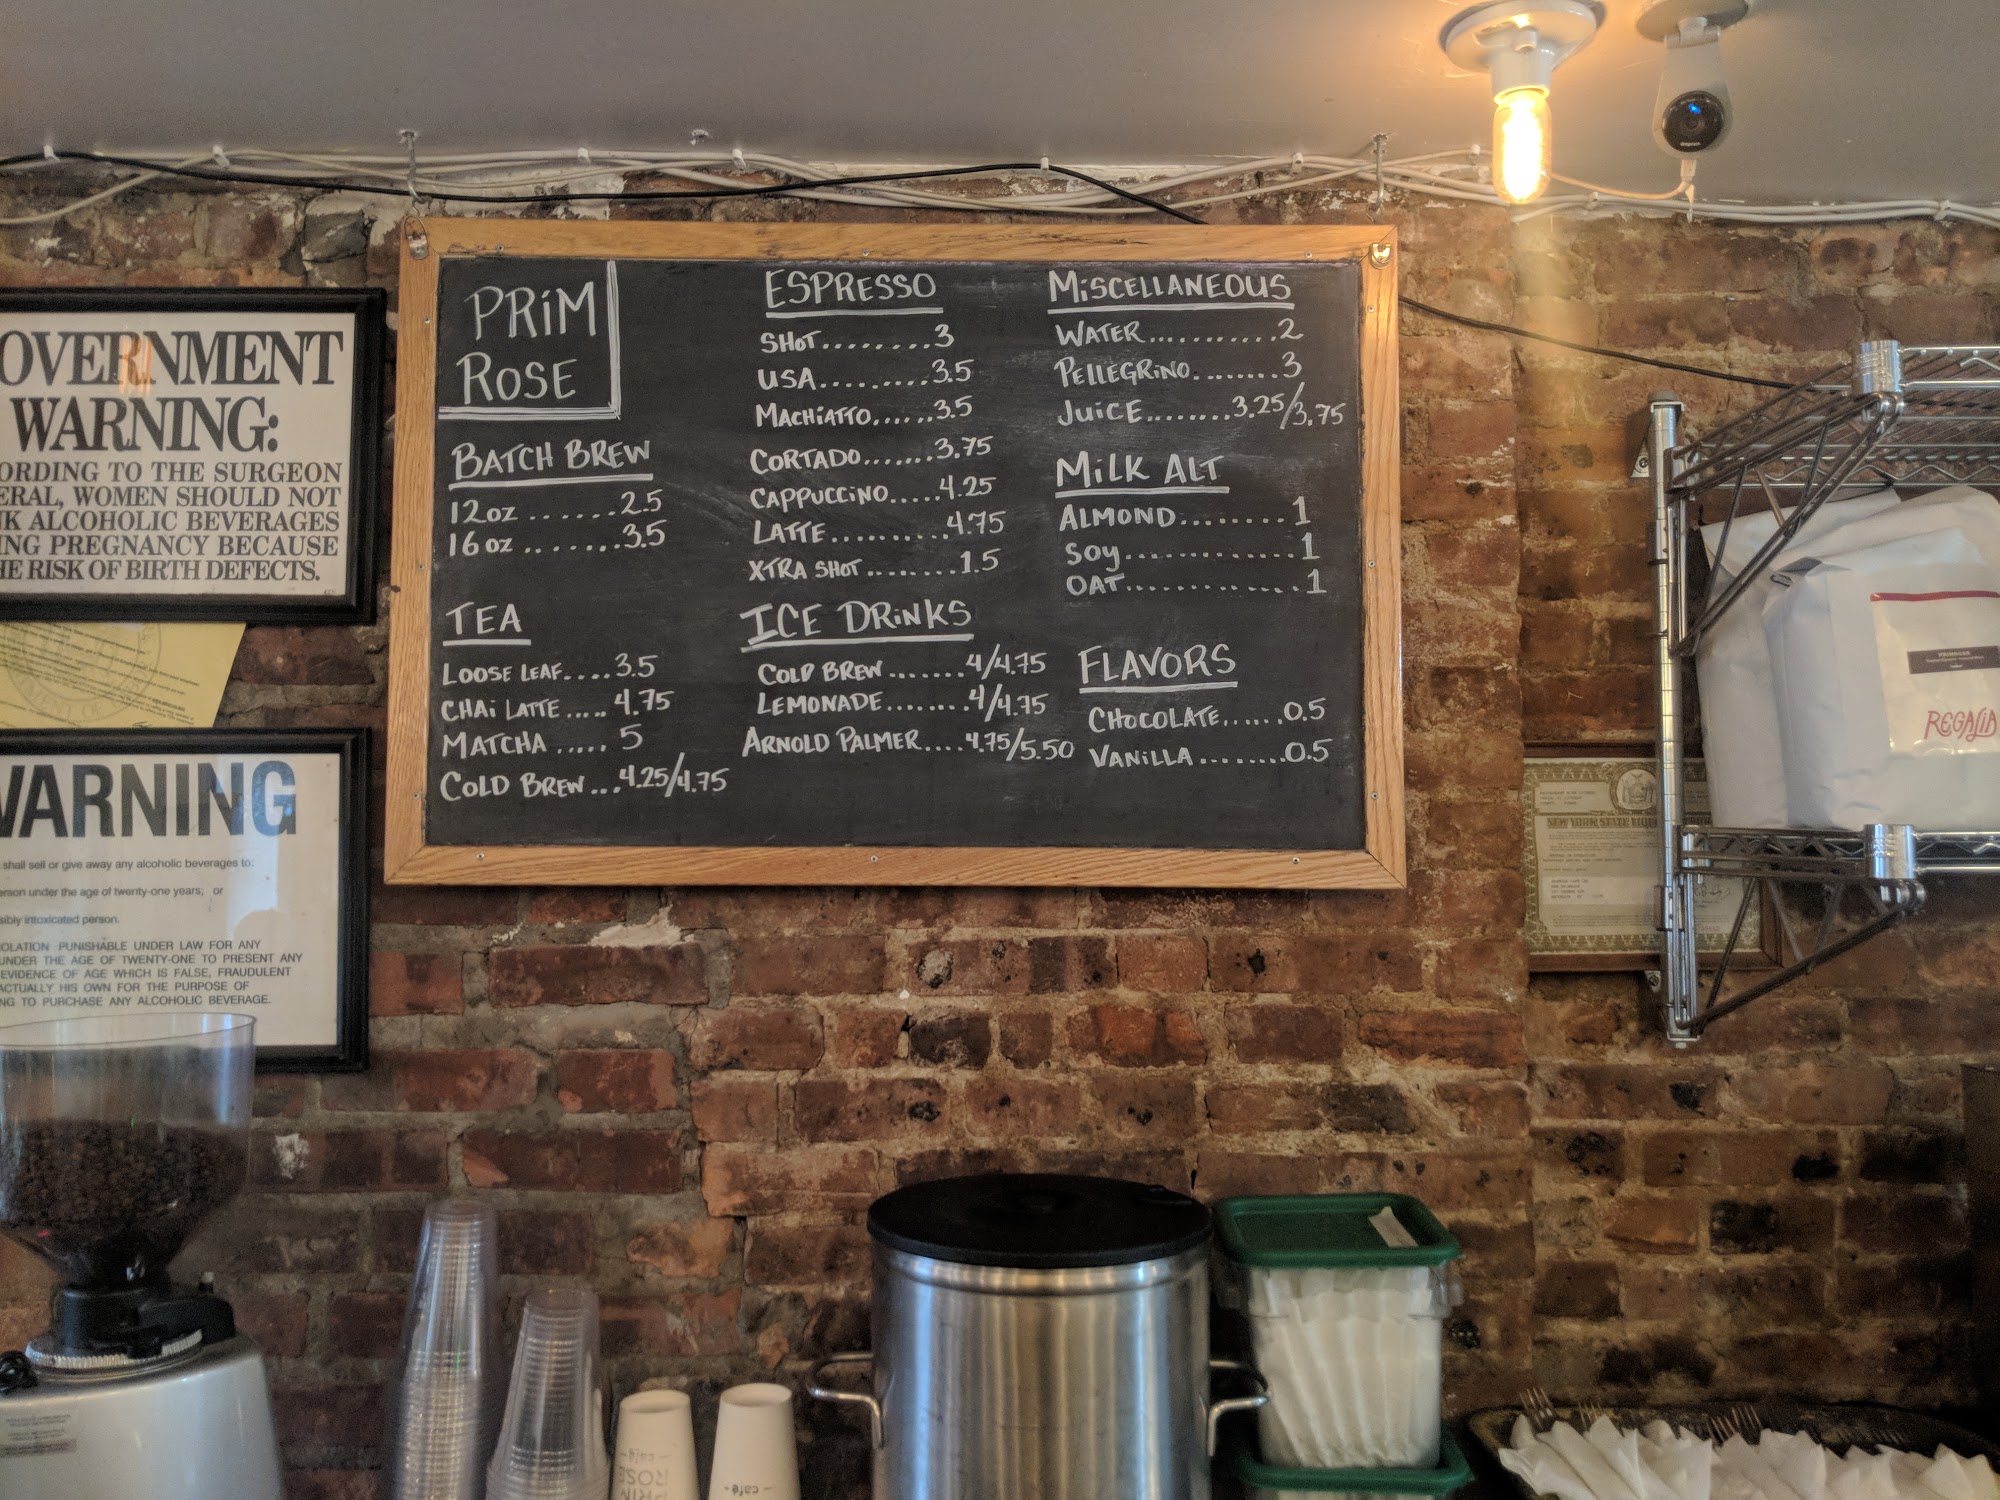 PRiM
ROSE
BATCH BREW
12oz.......2.5
16oz........3.5
TEA
LOOSE LEAF....3.5
CHAi LATTE.....4.75
MATCHA.....5
COLD BREW...4.25/4.75
ESPRESSO
SHOT.........3
USA..........3.5
MACHiATTO......3.5
CORTADO.......3.75
CAPPUCCiNO.....4.25
LATTE..........4.75
XTRA SHOT........1.5
ICE DRiNKS
COLD BREW.......4/4.75
LEMONADE........4/4.75
ARNOLD PALMER....4.75/5.50
MiSCELLANEOUS
WATER...........2
PELLEGRiNO........3
JUiCE........3.25/3.75
MiLK ALT
ALMOND........1
SOY.............1
OAT.............1
FLAVORS
CHOCOLATE......0.5
VANiLLA........0.5
OVERNMENT
WARNING:
ORDING TO THE SURGEON
ERAL, WOMEN SHOULD NOT
NK ALCOHOLIC BEVERAGES
ING PREGNANCY BECAUSE
HE RISK OF BIRTH DEFECTS.
WARNING
shall sell or give away any alcoholic beverages to:
erson under the age of twenty-one years; or
sibly intoxicated person.
OLATION PUNISHABLE UNDER LAW FOR ANY
UNDER THE AGE OF TWENTY-ONE TO PRESENT ANY
EVIDENCE OF AGE WHICH IS FALSE, FRAUDULENT
ACTUALLY HIS OWN FOR THE PURPOSE OF
NG TO PURCHASE ANY ALCOHOLIC BEVERAGE.
REGALIA
NEW YORK STATE
café
ROSE
PRIM
café